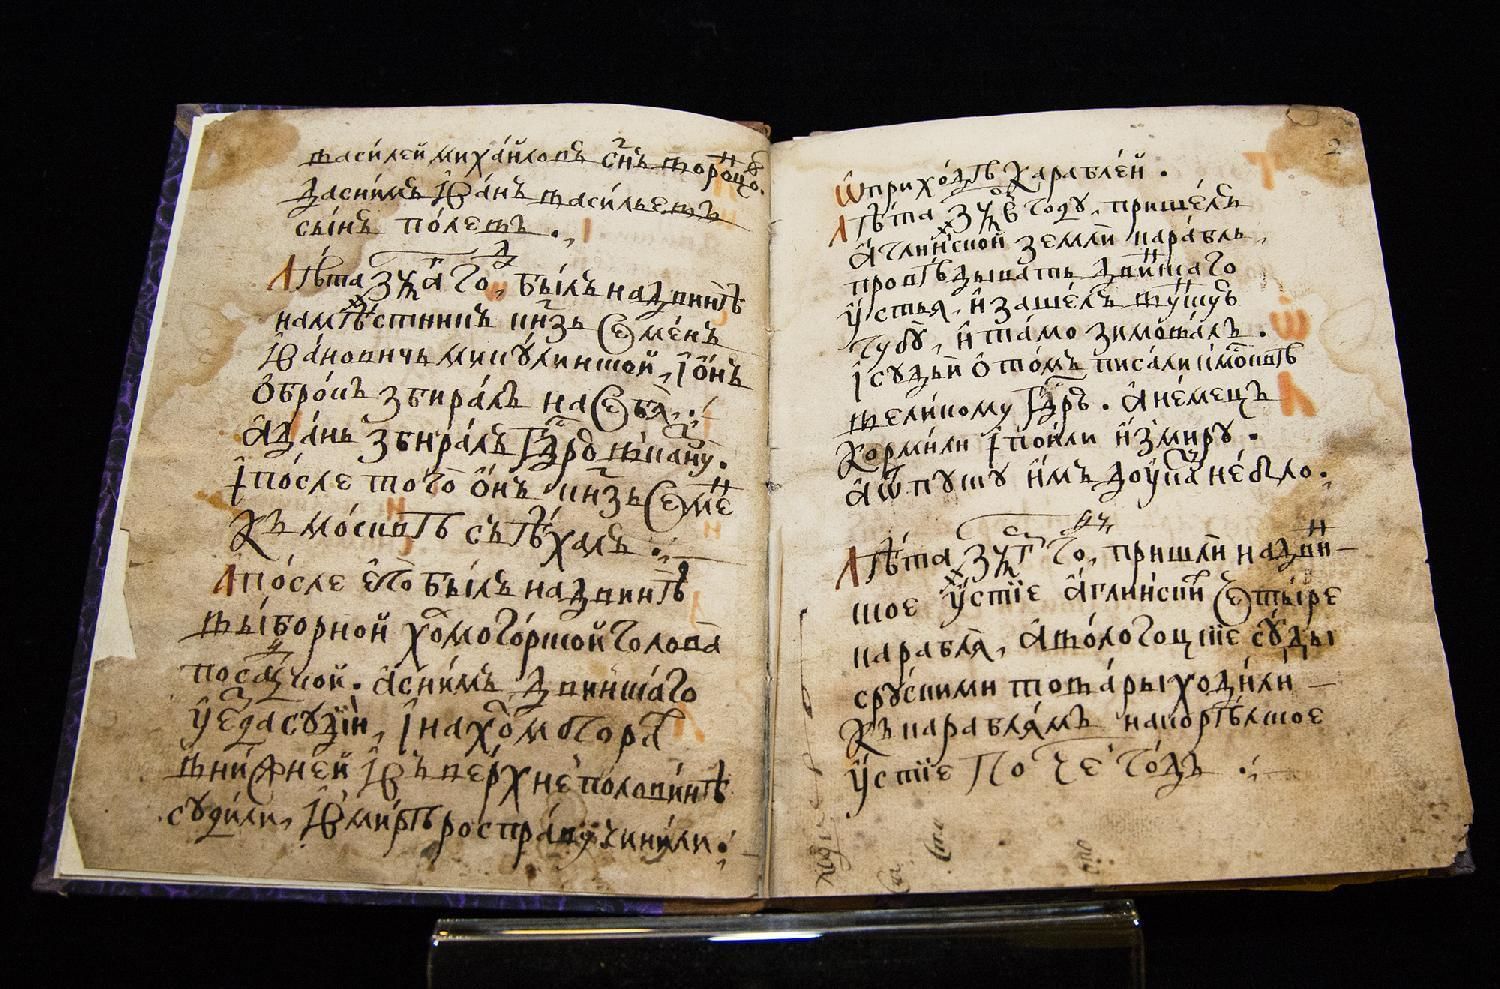 василей михайловъ снъ вороцов.
даснимъ іванъ васильевъ
сынъ полевъ.
лѣта ҂зѯдго, былъ надвинѣ
намѣстникъ кнзь семенъ
ивановичь микулинской, іонъ
оброкъ збиралъ насебя.
адань збиралъ гдрю вказну.
іпосле того онъ кнзь семен
къ москвѣ съѣхалъ.
апосле его былъ надвинѣ
выборной холмогорской голова
посацкой. аснимъ двинскаго
уезда судіи, інахолмогорах
внижней івъ верхне половинѣ
судили, івмирѣ росправу чинили.
2
ѿприходѣ караблей.
лѣта ҂зѯв году, пришелъ
аглинской земли карабль,
провѣдывать двинскаго
устья, изашелъ вунскую
губу, итамо зимовалъ.
ісудьи отомъ писали кмосквѣ
великому гдрю. анемецъ
кормили іпоили измиру.
аѿпуску имъ доука небыло.
лѣта ҂зѯг го, пришли надвин
ское устіе аглинскии четыре
карабля, авологоцкіе суды
срускими товары ходили
къ караблямъ накорѣлское
устіе по че годъ.